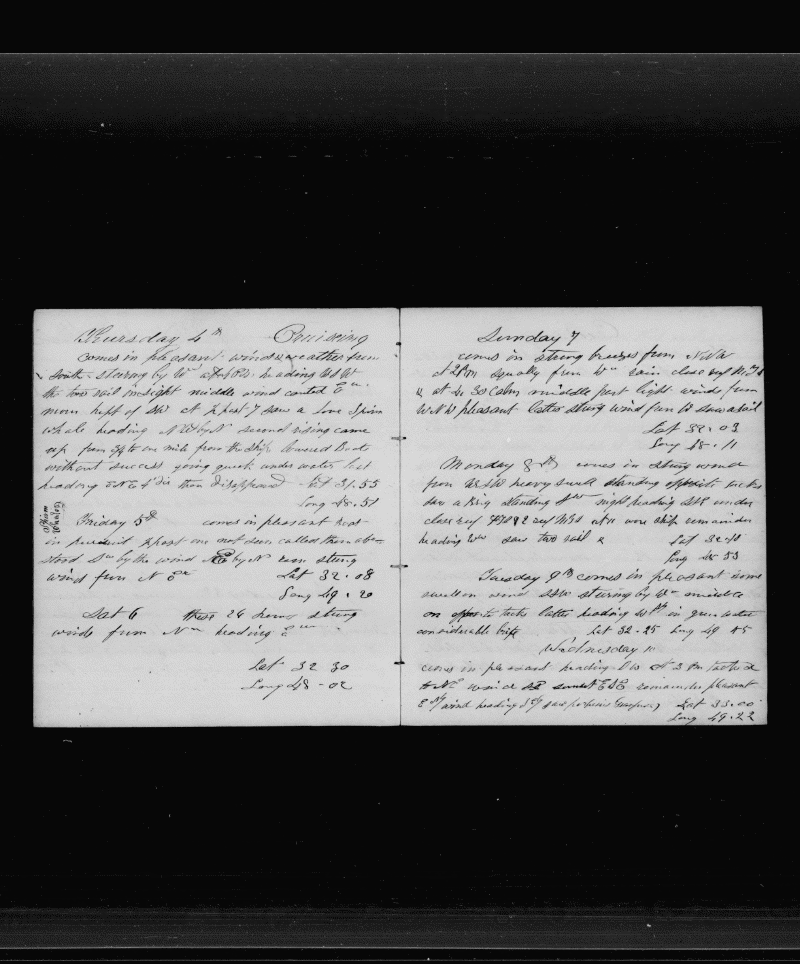 Thursday 4th Cruising
comes in pleasant wind & weather from
South steering by Wd heading WSW
the two sail insight middle wind canted Ewd
morn kept of SW at ½ past 7 saw a lone Sperm
whale heading NW by N second rising came
up from ¾ to one mile from the ship lowered Boats
without success going quick under water last
heading ENE 4 Dis then disappeared Lat 31.55
Long 48.51
Sperm
Whales
Friday 5th comes in pleasant boats
in pursuit ½ past one not seen called them abo
stood Sd by the wind NE by N even strong
wind from N Ed
Lat 32.08
Long 49.20
Sat 6 these 24 hours strong
winds from Nd heading Ed
Lat 32 30
Long 48-02
Sunday 7
comes in strong breezes from NNW
at 2 PM squally from Wd rain close reef
& at 4.30 Calm middle part light winds from
WNW pleasant latter strong wind from saw a sail
Lat 32.03
Long 48.11
Monday 8th comes in strong wind
from WSW heavy swell standing opposit tacks
saw a Brig standing night heading under
close reef wore ship remainder
heading Wd saw two sail &
Lat 32 10
Long 48 53
Tuesday 9th comes in pleasant some
swell on wind SSW steering by Wd middle
on opposite tacks latter heading in green water
considerable
Lat 32-25 Long 49 45
Wednesday 10
comes in pleasant heading at 3 Pm tacked
to Nd wind ESE remainder pleasant
wind heading saw
Lat 33.00
Long 49.22